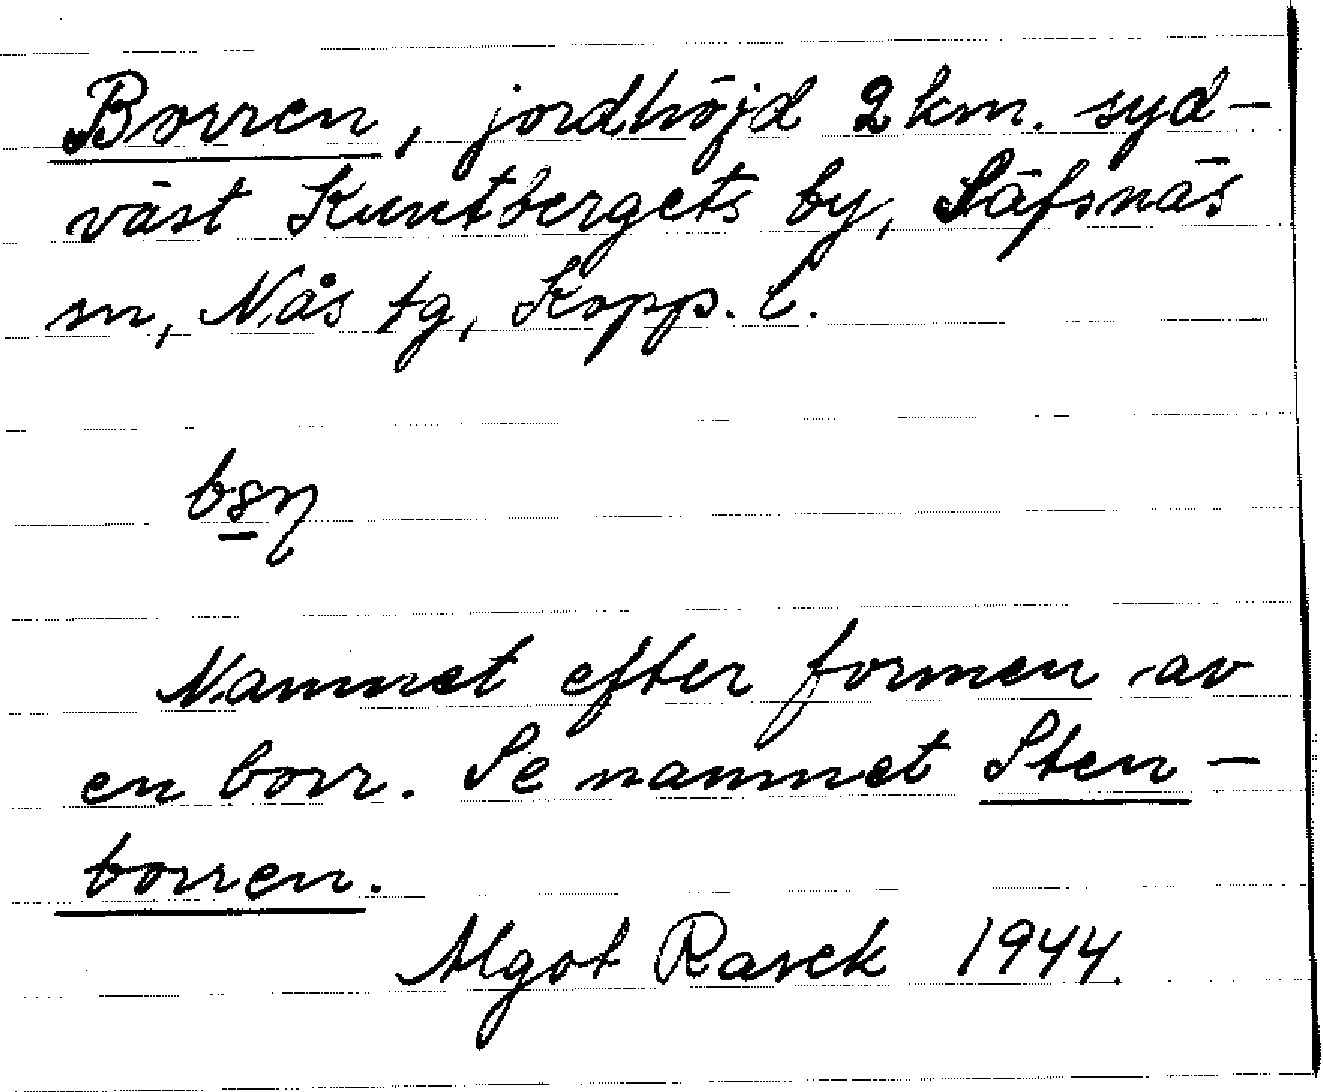 Borren, jordhöjd 2 km. syd-
väst Kuntbergets by, Säfsnäs
sn, Nås tg, Kopp. l.
Namnet efter formen av
en borr. Se namnet Sten-
borren.
Algot Rasck 1944.